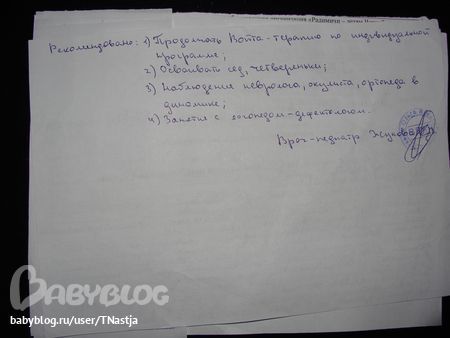 организация «Радимичи –
Рекомендовано: 1) Продолжать Войта-терапию по индивидуальной
программе;
2) Осваивать сед, четвереньки;
3) Наблюдение невролога, окулиста, ортопеда в
динамике;
4) Занятия с логопедом-дефектологом.
Врач-педиатр
BABYBLOG
babyblog.ru/user/TNastja